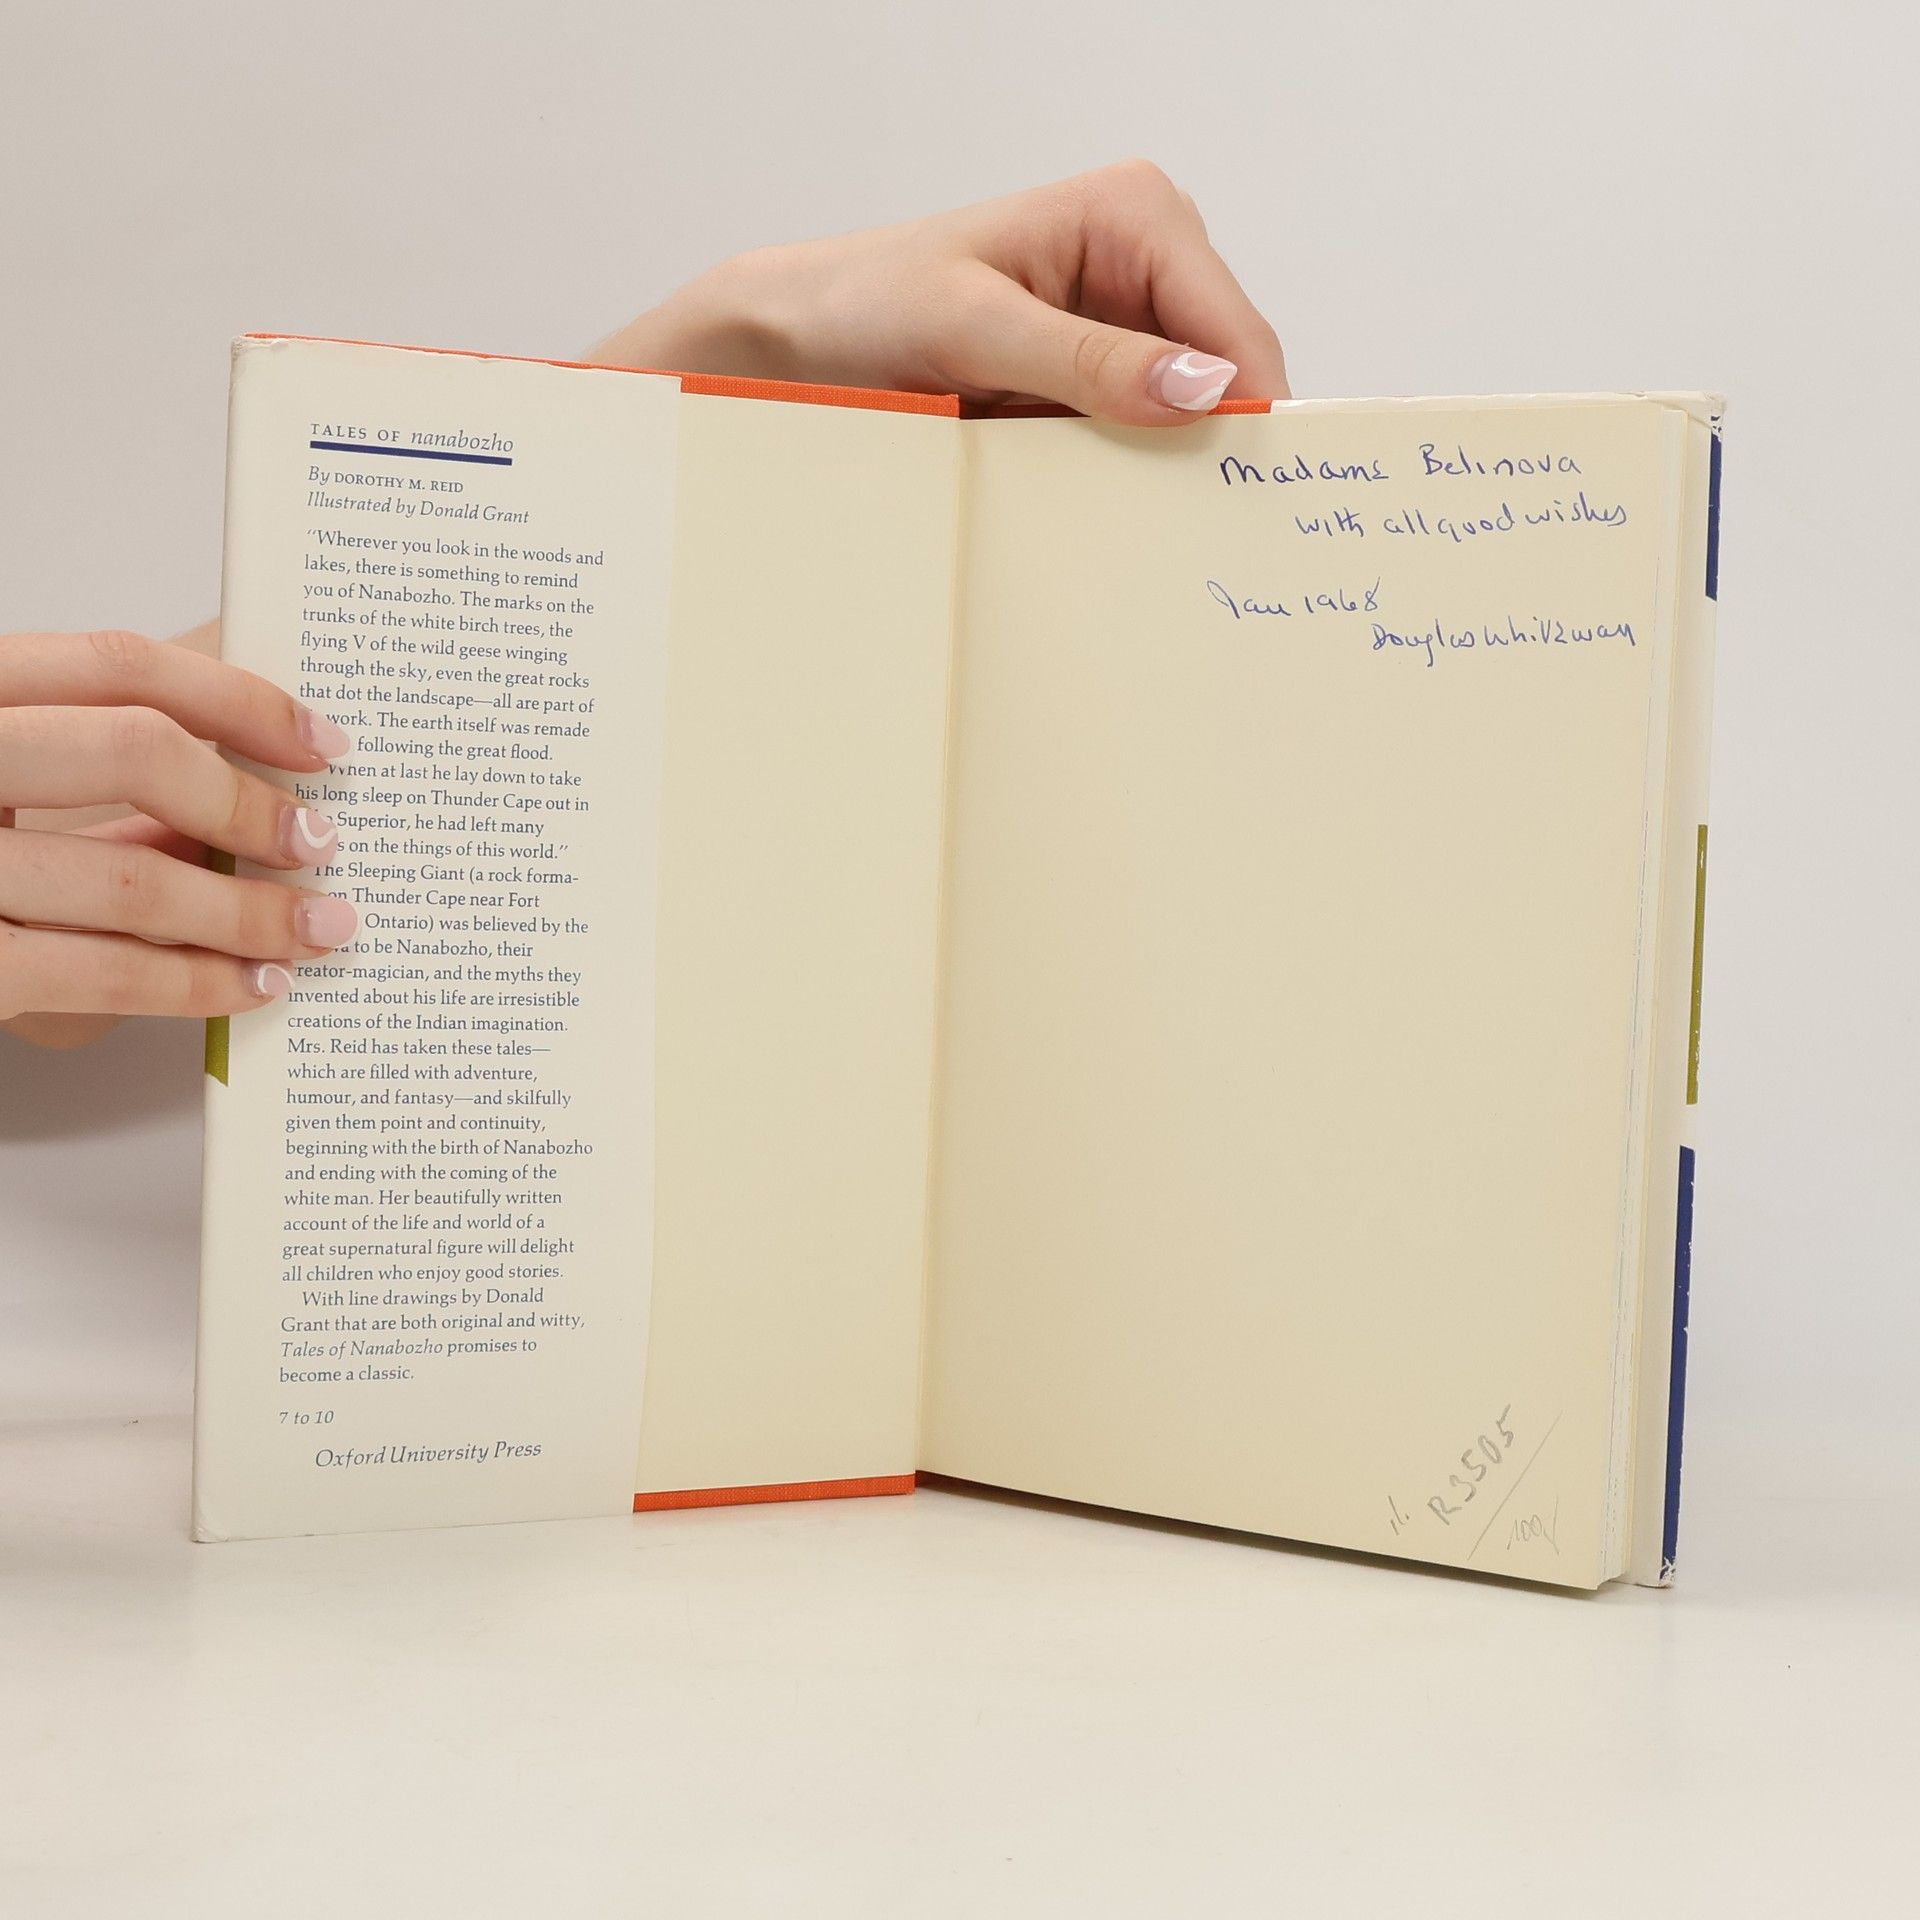 TALES OF nanabozho
By DOROTHY M. REID
Illustrated by Donald Grant
"Wherever you look in the woods and
lakes, there is something to remind
you of Nanabozho. The marks on the
trunks of the white birch trees, the
flying V of the wild geese winging
through the sky, even the great rocks
that dot the landscape—all are part of
work. The earth itself was remade
following the great flood.
When at last he lay down to take
his long sleep on Thunder Cape out in
Superior, he had left many
on the things of this world."
The Sleeping Giant (a rock forma-
on Thunder Cape near Fort
Ontario) was believed by the
to be Nanabozho, their
creator-magician, and the myths they
invented about his life are irresistible
creations of the Indian imagination.
Mrs. Reid has taken these tales—
which are filled with adventure,
humour, and fantasy—and skilfully
given them point and continuity,
beginning with the birth of Nanabozho
and ending with the coming of the
white man. Her beautifully written
account of the life and world of a
great supernatural figure will delight
all children who enjoy good stories.
With line drawings by Donald
Grant that are both original and witty,
Tales of Nanabozho promises to
become a classic.
7 to 10
Oxford University Press
Madame Belinova
with all good wishes
Jan 1968
Douglas
R3505